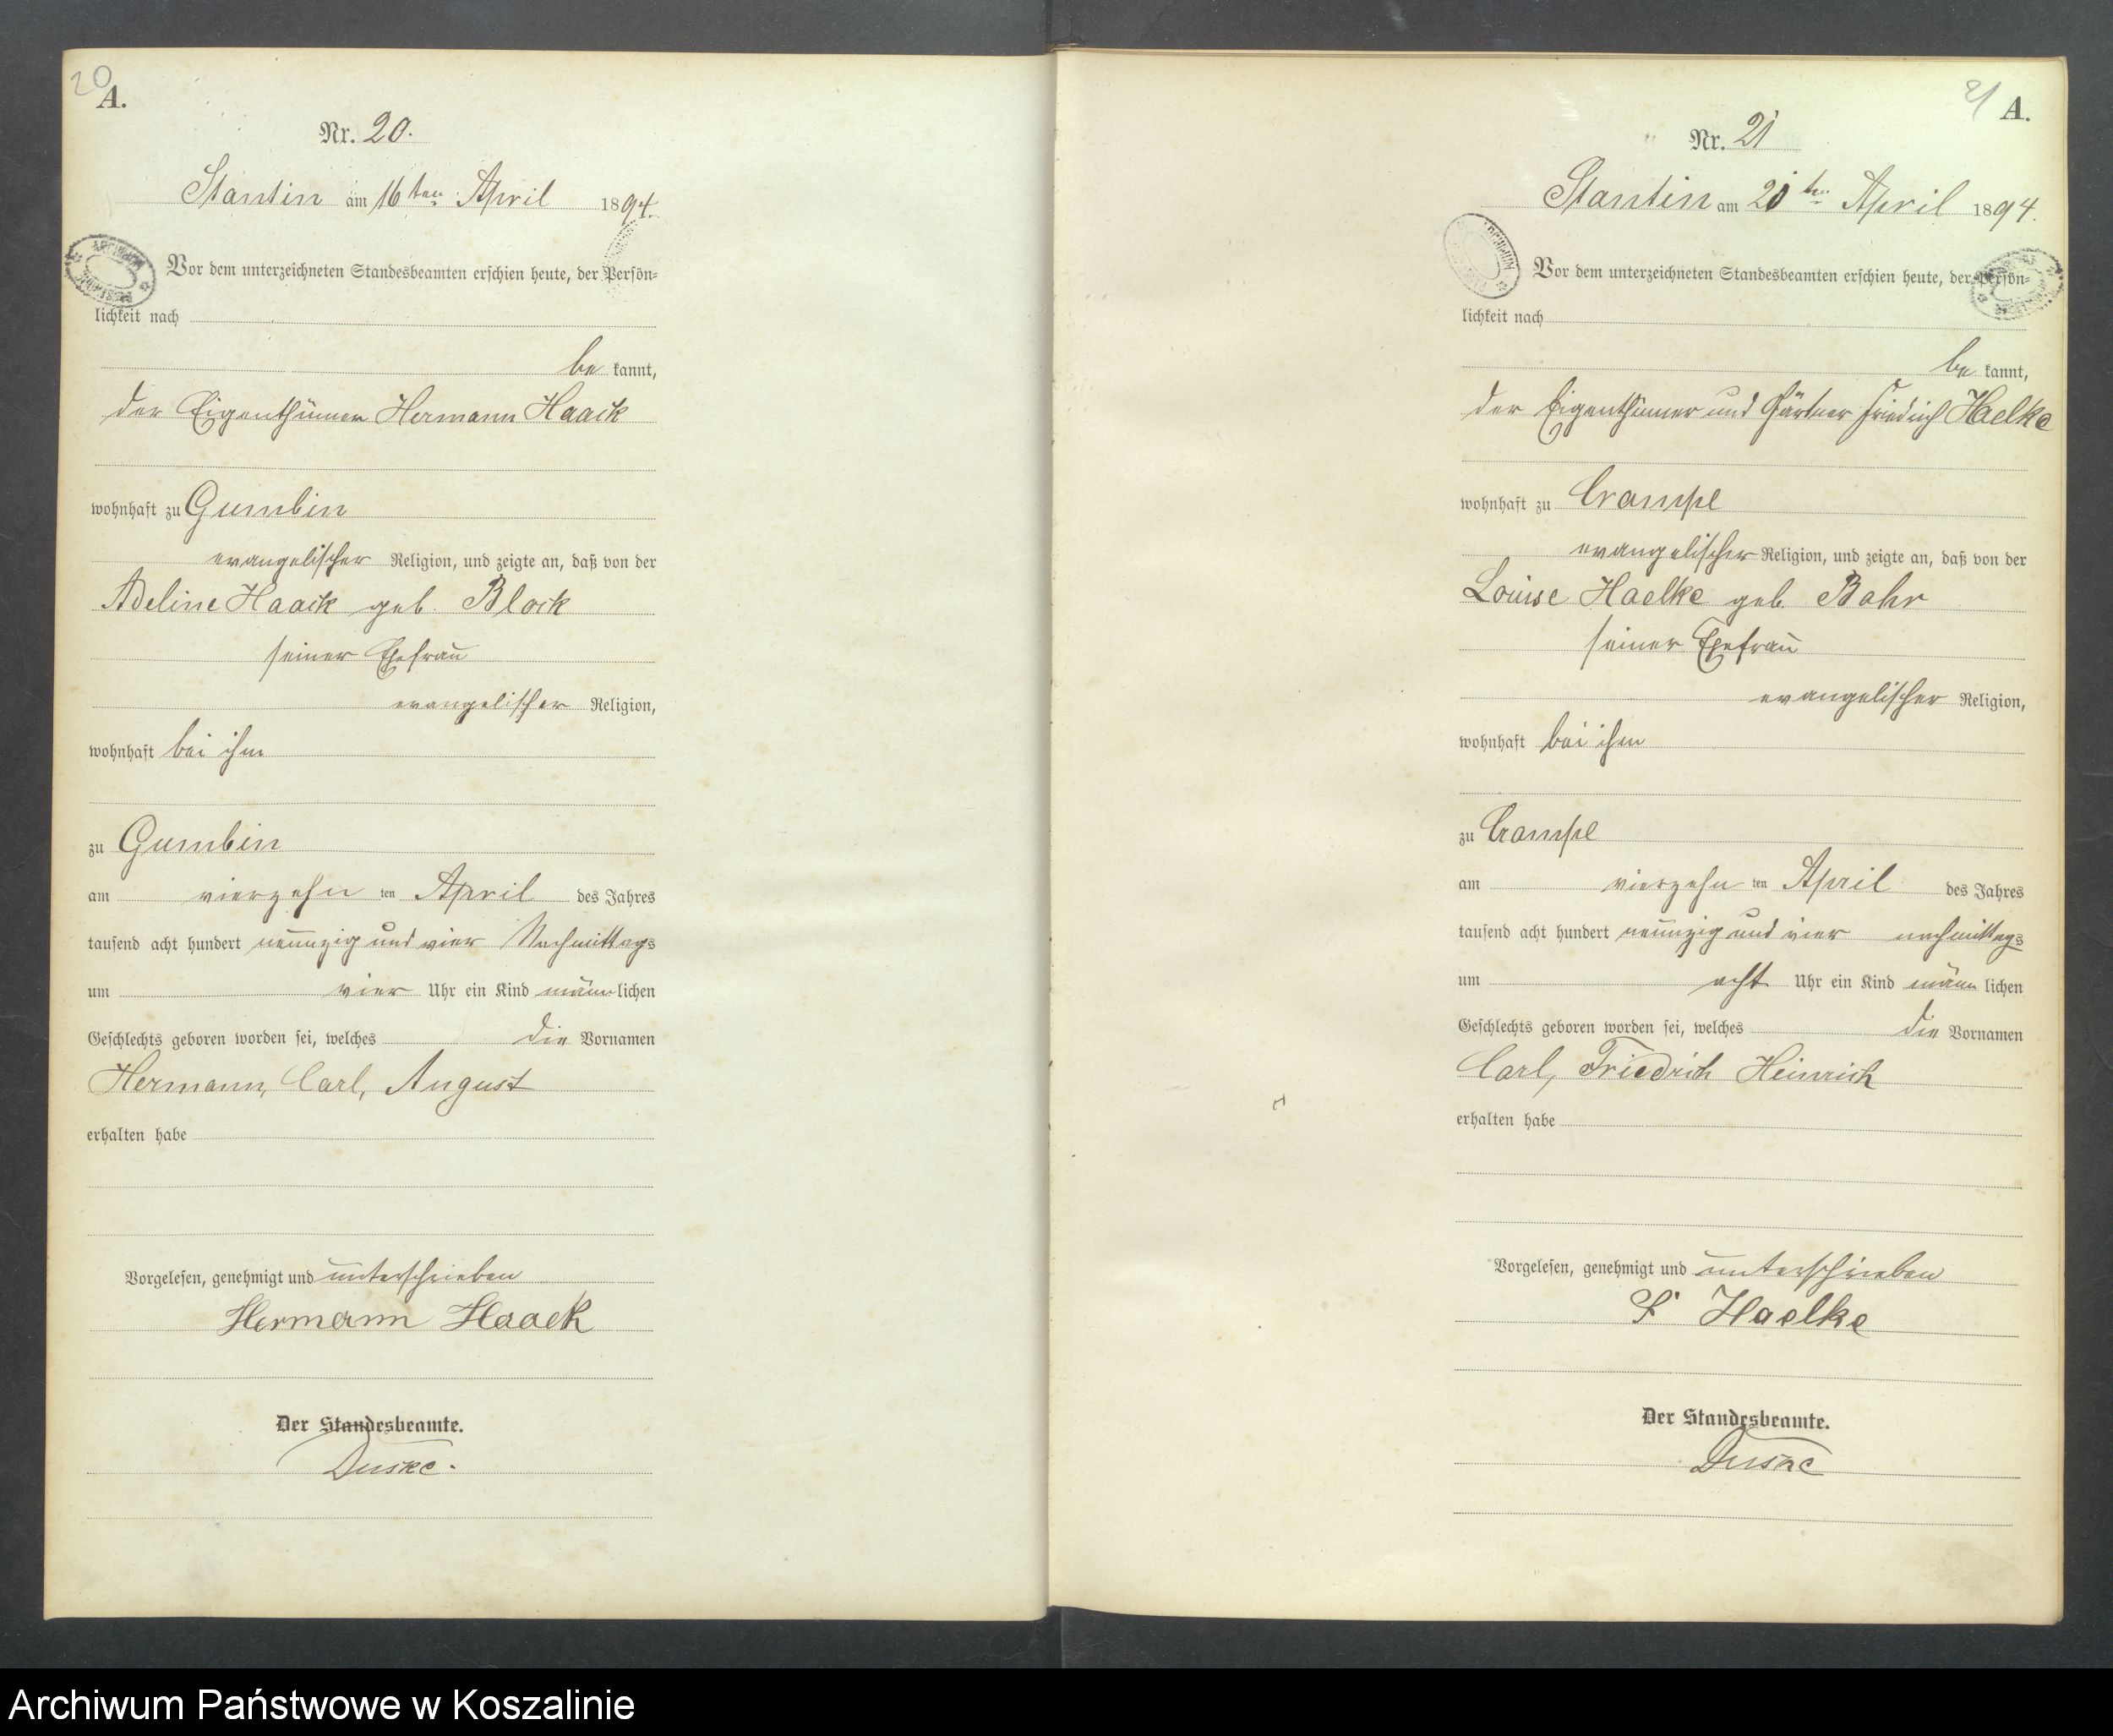 20
A.
Nr. 20.
Stantin am 16ten April 1894.
Vor dem unterzeichneten Standesbeamten erschien heute, der Persön-
lichkeit nach
be kannt,
der Eigenthümer Hermann Haack
wohnhaft zu Gumbin
evangelischer Religion, und zeigte an, daß von der
Adeline Haack geb. Block
seiner Ehefrau
evangelischer Religion,
wohnhaft bei ihm
zu Gumbin
am vierzehn ten April des Jahres
tausend acht hundert neunzig und vier Nachmittags
um vier Uhr ein Kind männlichen
Geschlechts geboren worden sei, welches die Vornamen
Hermann, Carl, August
erhalten habe
Vorgelesen, genehmigt und unterschrieben
Hermann Haack
Der Standesbeamte.
Duske.
21
A.
Nr. 21
Stantin am 21ten April 1894.
Vor dem unterzeichneten Standesbeamten erschien heute, der Persön-
lichkeit nach
be kannt,
der Eigenthümer und Gärtner Friedrich Haelke
wohnhaft zu Crampe
evangelischer Religion, und zeigte an, daß von der
Louise Haelke geb. Bahr
seiner Ehefrau
evangelischer Religion,
wohnhaft bei ihm
zu Crampe
am vierzehn ten April des Jahres
tausend acht hundert neunzig und vier nachmittags
um acht Uhr ein Kind männlichen
Geschlechts geboren worden sei, welches die Vornamen
Carl, Friedrich Heinrich
erhalten habe
Vorgelesen, genehmigt und unterschrieben
F Haelke
Der Standesbeamte.
Duske
Archiwum Państwowe w Koszalinie